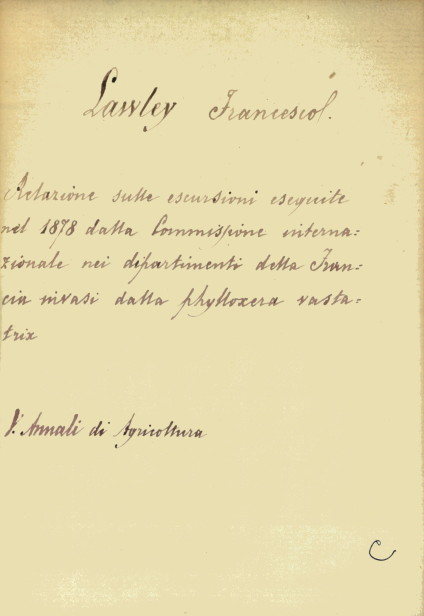 Lawley Francesco.
Relazione sulle escursioni eseguite
nel 1878 dalla Commissione interna=
zionale nei dipartimenti della Fran=
cia invasi dalla phylloxera vasta=
trix
V. Annali di Agricoltura
C